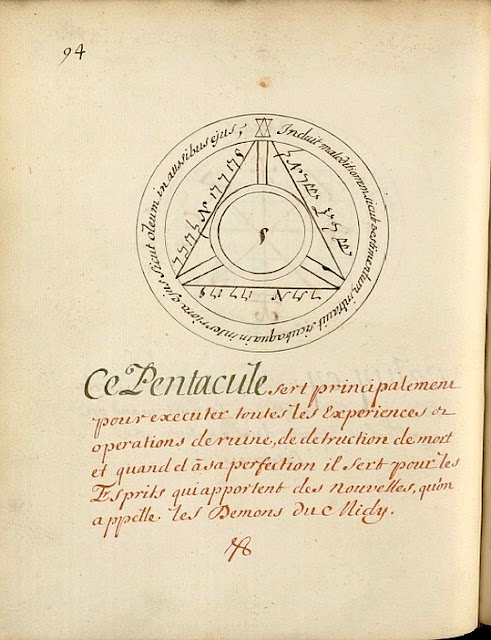 94
Induit maleditionem sicut vestimentum, intrauit sicut aqua in interiora ejus Sicut oleum in aussibus ejus;
Ce Pentacule sert principalement
pour executer toutes les Experiences or
operations de ruine, de detruction de mort
et quand el à sa perfection il sert pour les
Esprits qui apportent des nouvelles, qu'on
appelle les Demons du Midy.